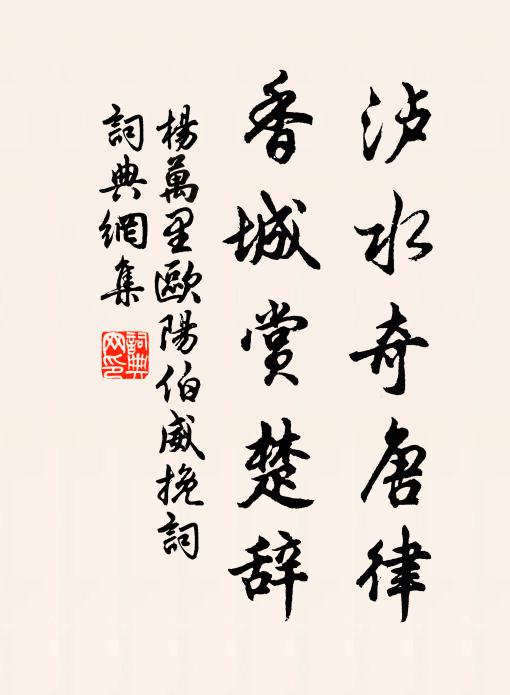 泸水奇唐律
香城赏楚辞
楊萬里歐陽伯威挽詞
詞典網集
詞典網印